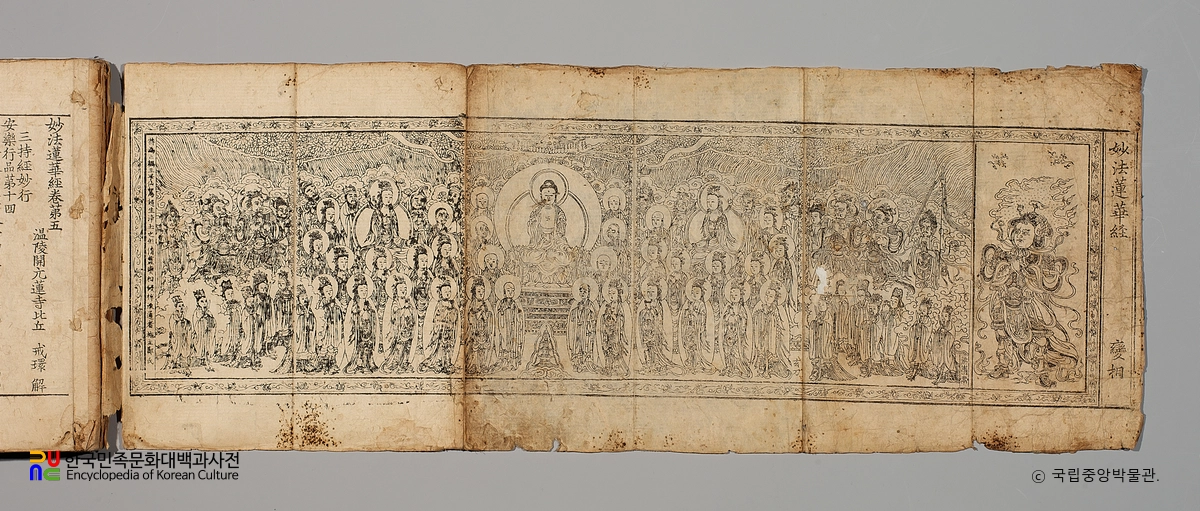 妙法蓮華經
變相
妙法蓮華經卷第五
溫陵開元蓮寺比丘 戒環 解
三持經妙行
安樂行品第十四
한국민족문화대백과사전
Encyclopedia of Korean Culture
ⓒ 국립중앙박물관.